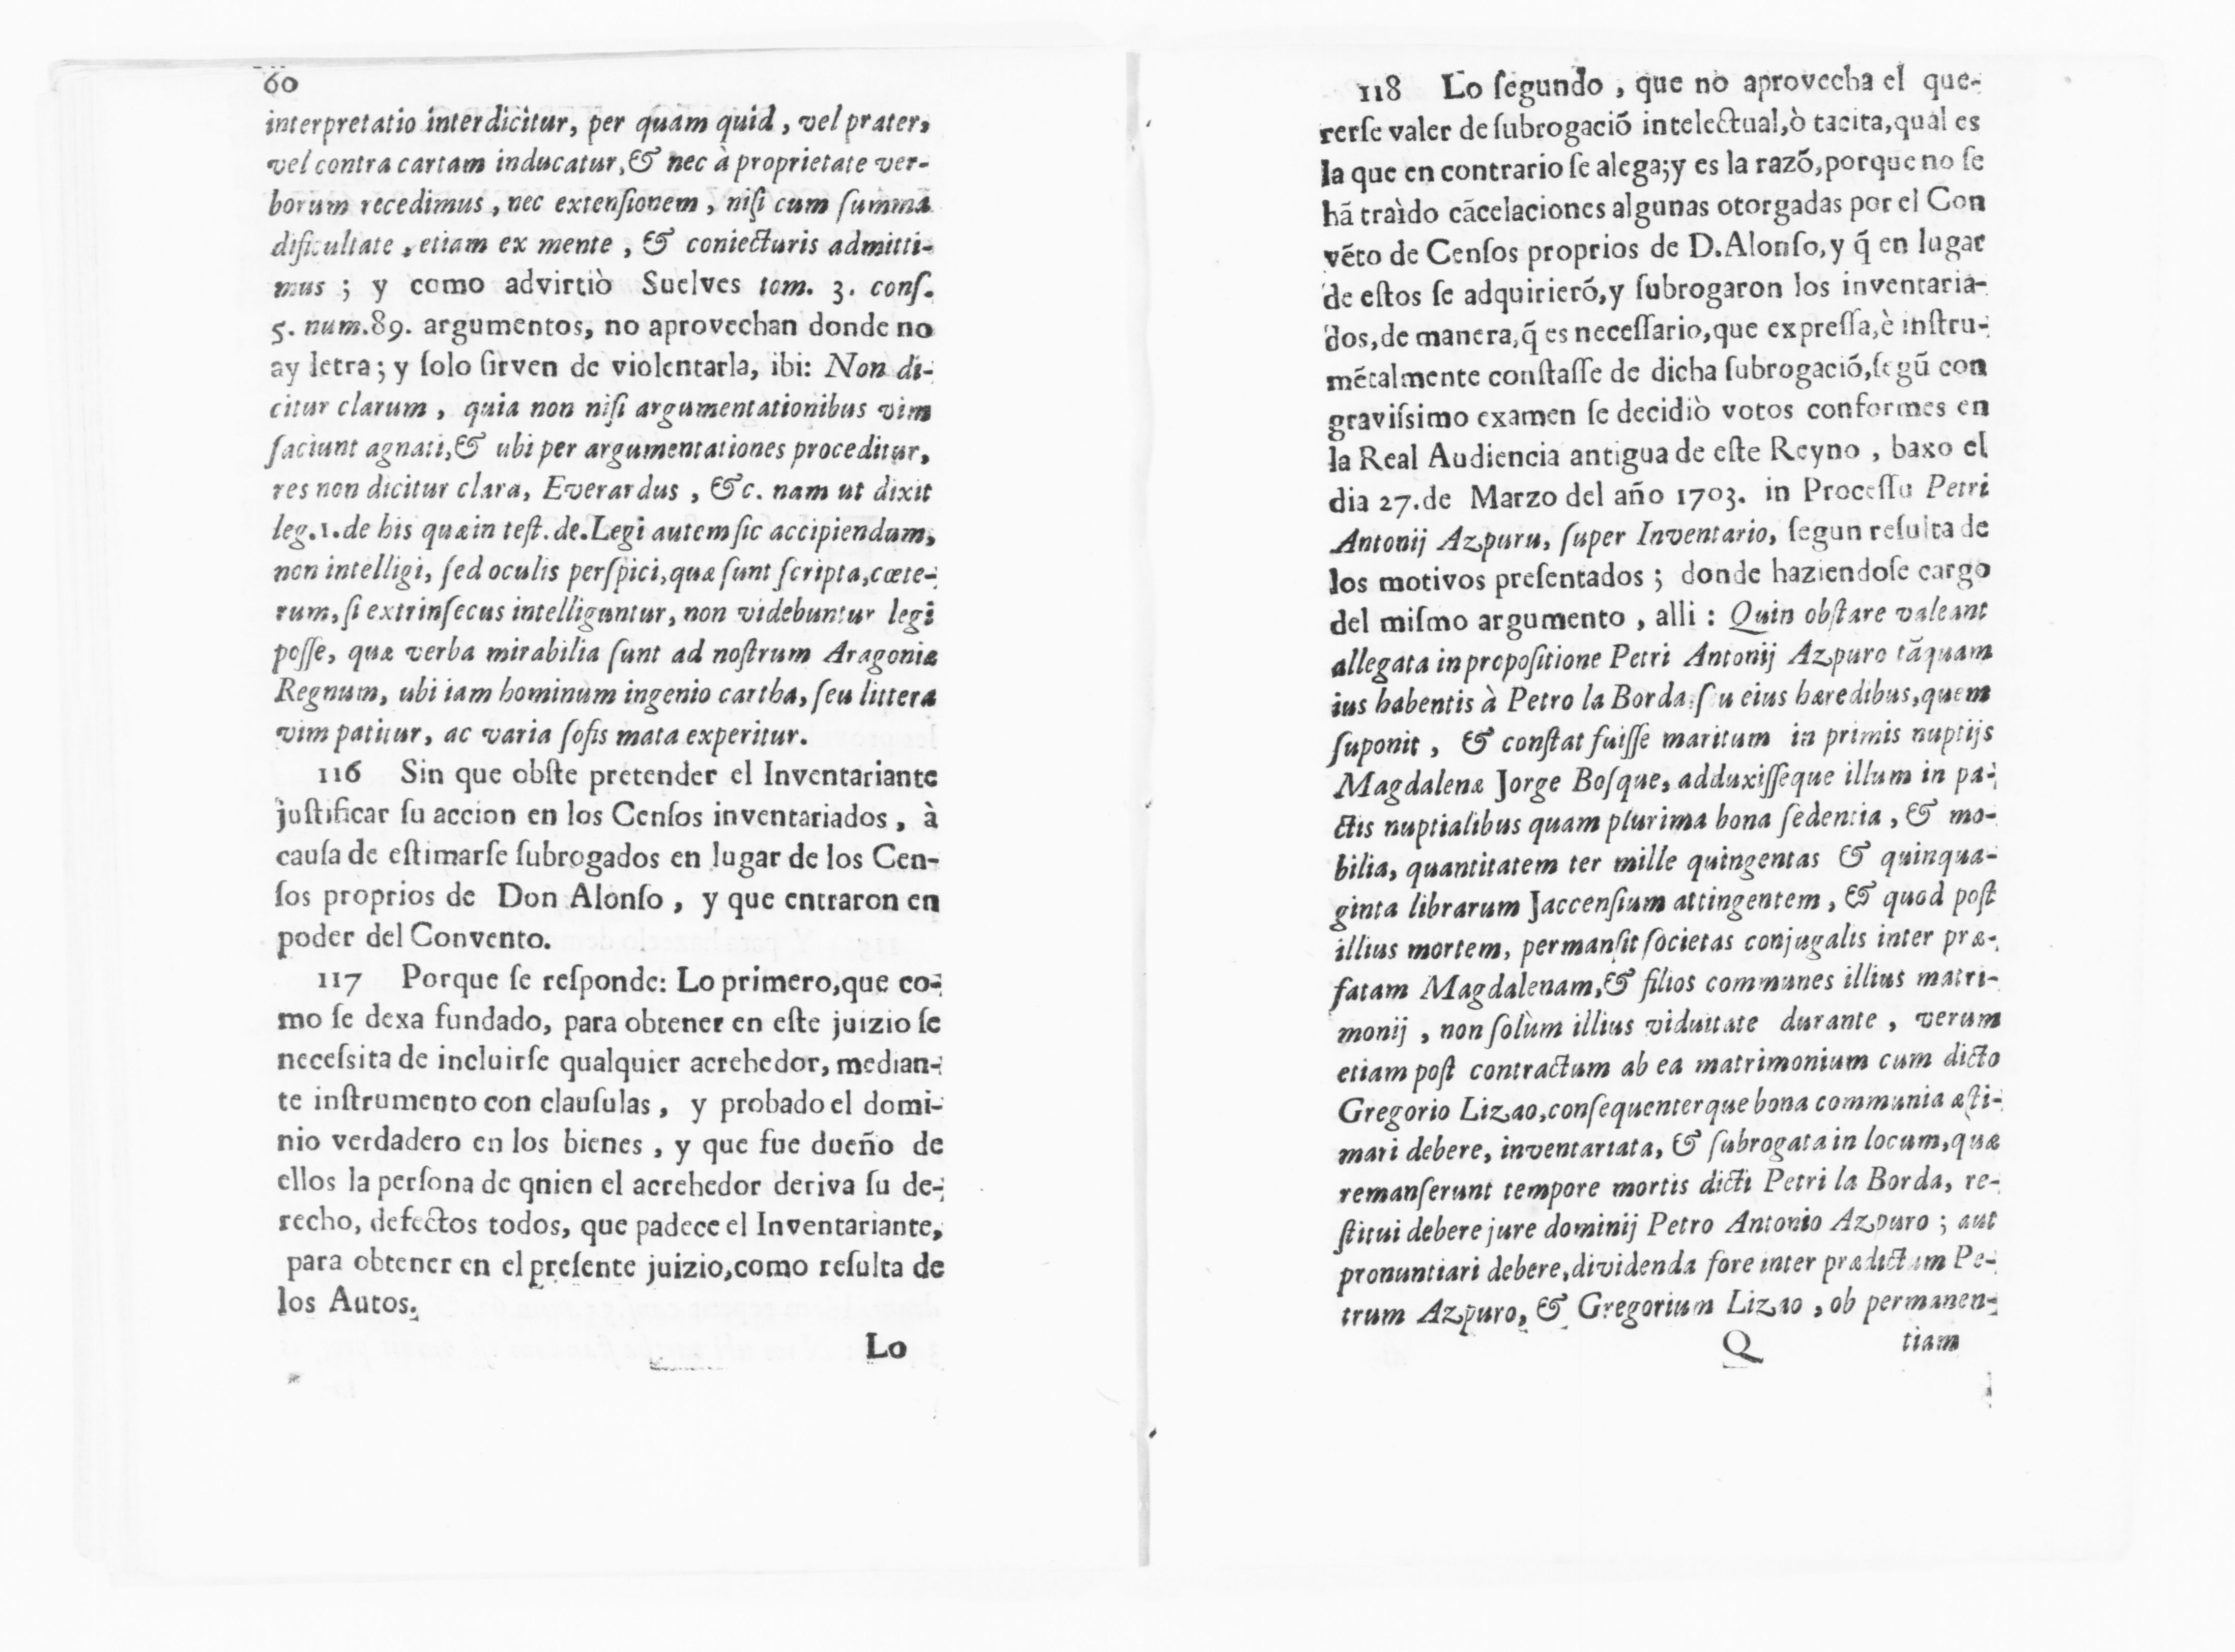 60
interpretatio interdicitur, per quam quid, vel prater,
vel contra cartam inducatur, & nec à proprietate ver-
borum recedimus, nec extensionem, nisi cum summa
dificultate, etiam ex mente, & coniecturis admitti-
mus; y como advirtiò Suelves tom. 3. cons.
5. num.89. argumentos, no aprovechan donde no
ay letra; y solo sirven de violentarla, ibi: Non di-
citur clarum, quia non nisi argumentationibus vim
faciunt agnati, & ubi per argumentationes proceditur,
res non dicitur clara, Everardus, &c. nam ut dixit
leg.1.de his quæ in test. de. Legi autem sic accipiendum,
non intelligi, sed oculis perspici, quæ sunt scripta, cœte-
rum, si extrinsecus intelliguntur, non videbuntur legi
posse, quæ verba mirabilia sunt ad nostrum Aragoniæ
Regnum, ubi iam hominum ingenio cartha, seu littera
vim patitur, ac varia sofis mata experitur.
116 Sin que obste pretender el Inventariante
justificar su accion en los Censos inventariados, à
causa de estimarse subrogados en lugar de los Cen-
sos proprios de Don Alonso, y que entraron en
poder del Convento.
117 Porque se responde: Lo primero, que co-
mo se dexa fundado, para obtener en este juizio se
necessita de incluirse qualquier acrehedor, median-
te instrumento con clausulas, y probado el domi-
nio verdadero en los bienes, y que fue dueño de
ellos la persona de qnien el acrehedor deriva su de-
recho, defectos todos, que padece el Inventariante,
para obtener en el presente juizio, como resulta de
los Autos.
Lo
118 Lo segundo, que no aprovecha el que-
rerse valer de subrogaciõ intelectual, ò tacita, qual es
la que en contrario se alega; y es la razõ, porque no se
hã traìdo cãcelaciones algunas otorgadas por el Con
vẽto de Censos proprios de D.Alonso, y q̃ en lugar
de estos se adquirierõ, y subrogaron los inventaria-
dos, de manera, q̃ es necessario, que expressa, è instru-
mẽtalmente constasse de dicha subrogaciõ, segũ con
gravissimo examen se decidiò votos conformes en
la Real Audiencia antigua de este Reyno, baxo el
dia 27.de Marzo del año 1703. in Processu Petri
Antonij Azpuru, super Inventario, segun resulta de
los motivos presentados; donde haziendose cargo
del mismo argumento, alli: Quin obstare valeant
allegata in propositione Petri Antonij Azpuro tãquam
ius habentis à Petro la Borda, seu eius hæredibus, quem
suponit, & constat fuisse maritum in primis nuptijs
Magdalenæ Jorge Bosque, adduxisseque illum in pa-
ctis nuptialibus quam plurima bona sedentia, & mo-
bilia, quantitatem ter mille quingentas & quinqua-
ginta librarum Jaccensium attingentem, & quod post
illius mortem, permansit societas conjugalis inter præ-
fatam Magdalenam, & filios communes illius matri-
monij, non solùm illius viduitate durante, verum
etiam post contractum ab ea matrimonium cum dicto
Gregorio Lizao, consequenterque bona communia æsti-
mari debere, inventariata, & subrogata in locum, quæ
remanserunt tempore mortis dicti Petri la Borda, re-
stitui debere jure dominij Petro Antonio Azpuro; aut
pronuntiari debere, dividenda fore inter prædictum Pe-
trum Azpuro, & Gregorium Lizao, ob permanen-
Q tiam